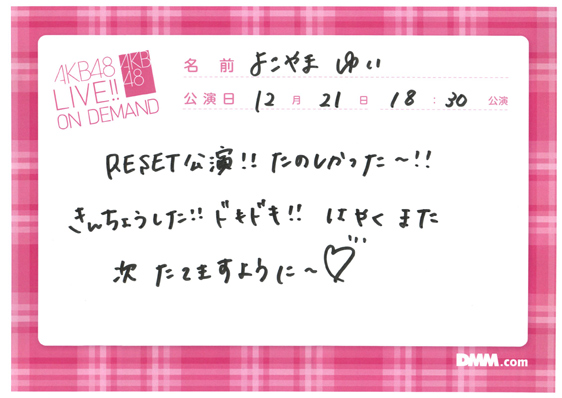 AKB48
LIVE!!
ON DEMAND
AKB
48
名前 よこやま ゆい
公演日 12月21日 18:30 公演
RESET公演!! たのしかった〜!!
きんちょうした!! ドキドキ!! はやく また
次 たてますように〜♡
DMM.com